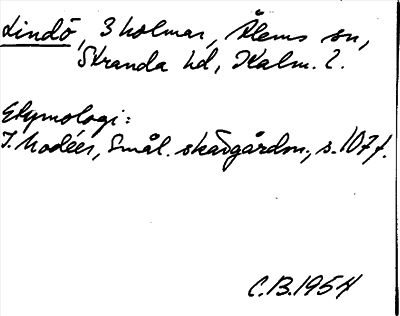 Lindö, 3 holmar, Ålems sn,
Stranda hd, Kalm. l.
Etymologi:
I. Modéer, Smål. skärgårdsn., s. 107 f.
C.B. 1954